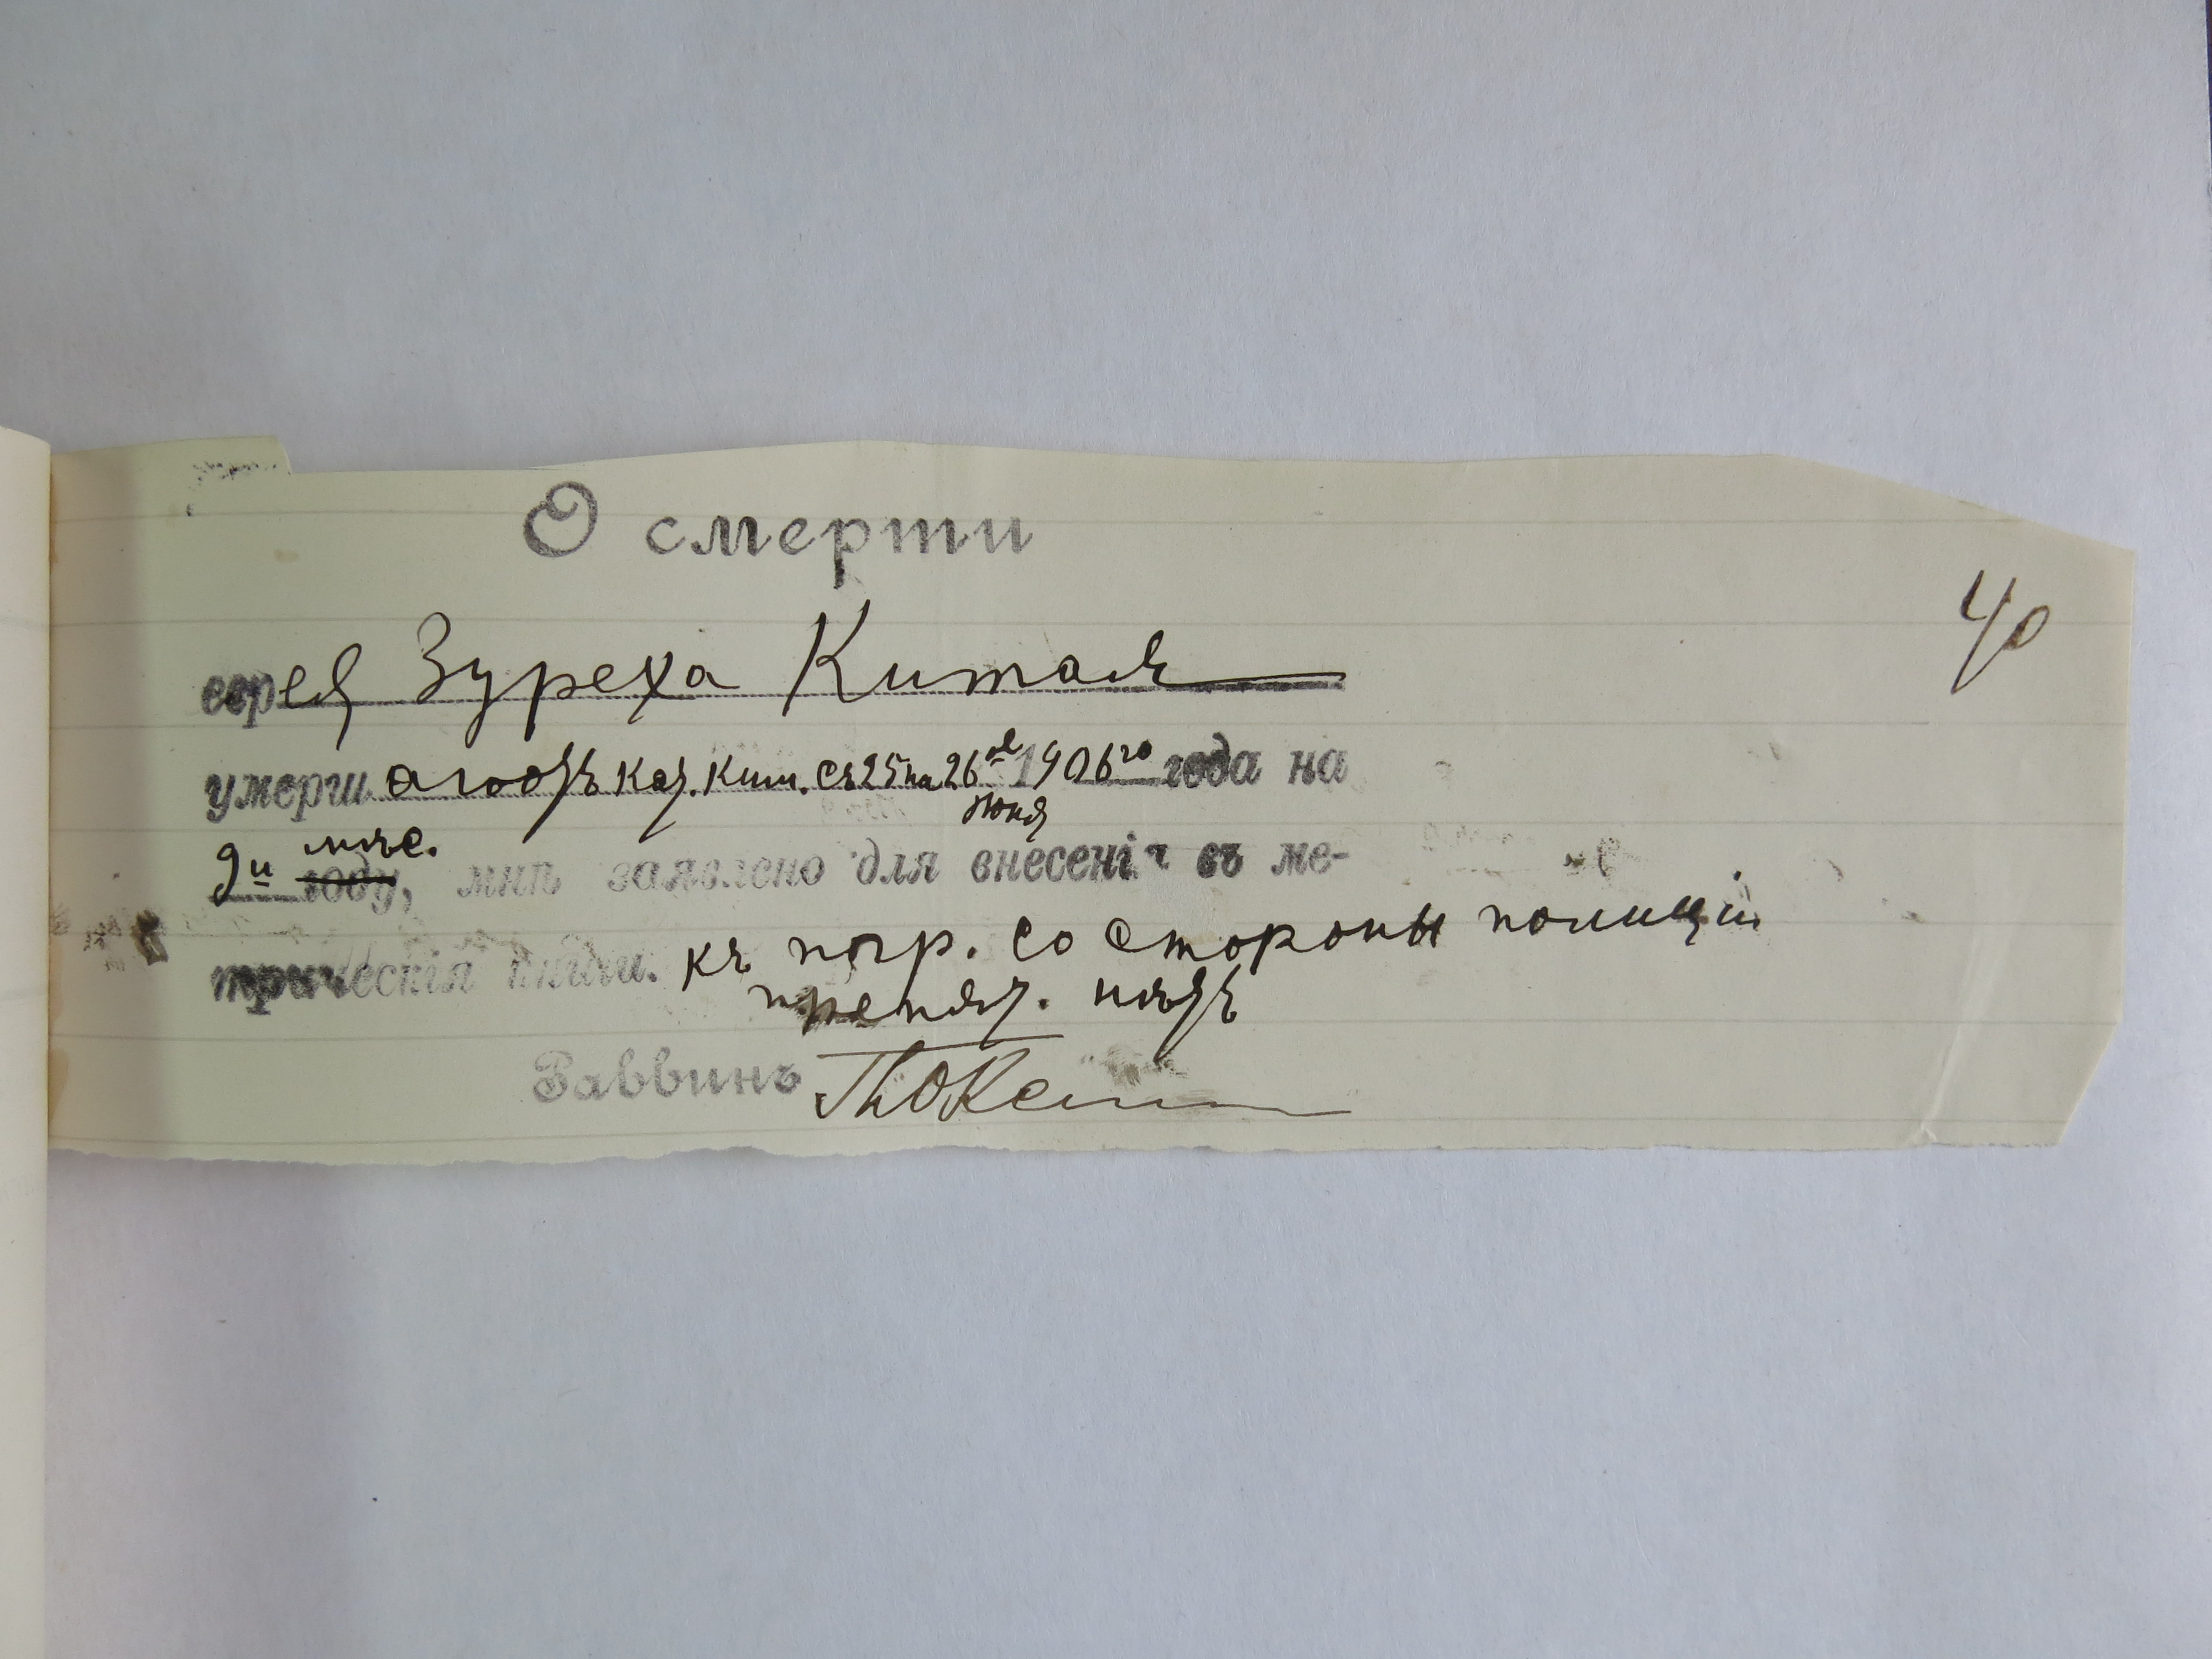 О смерти
40
еврея Зуреха Китая
умерш отъ каз. киш. съ 25 на 26е 1906го года на
Июня
9и мѣс.
году, мнѣ заявлено для внесенія въ ме-
трическія книги. къ погр. со стороны полиціи
препят. нѣтъ
Раввинъ